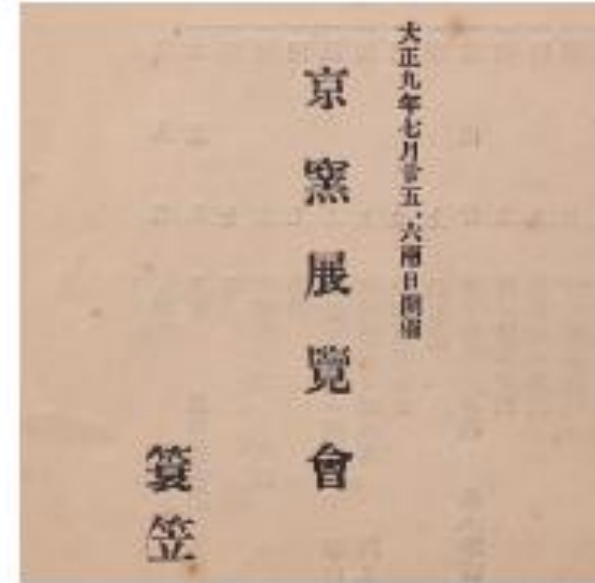 大正九年七月廿五、六兩日開催
京窯展覽會
簑笠